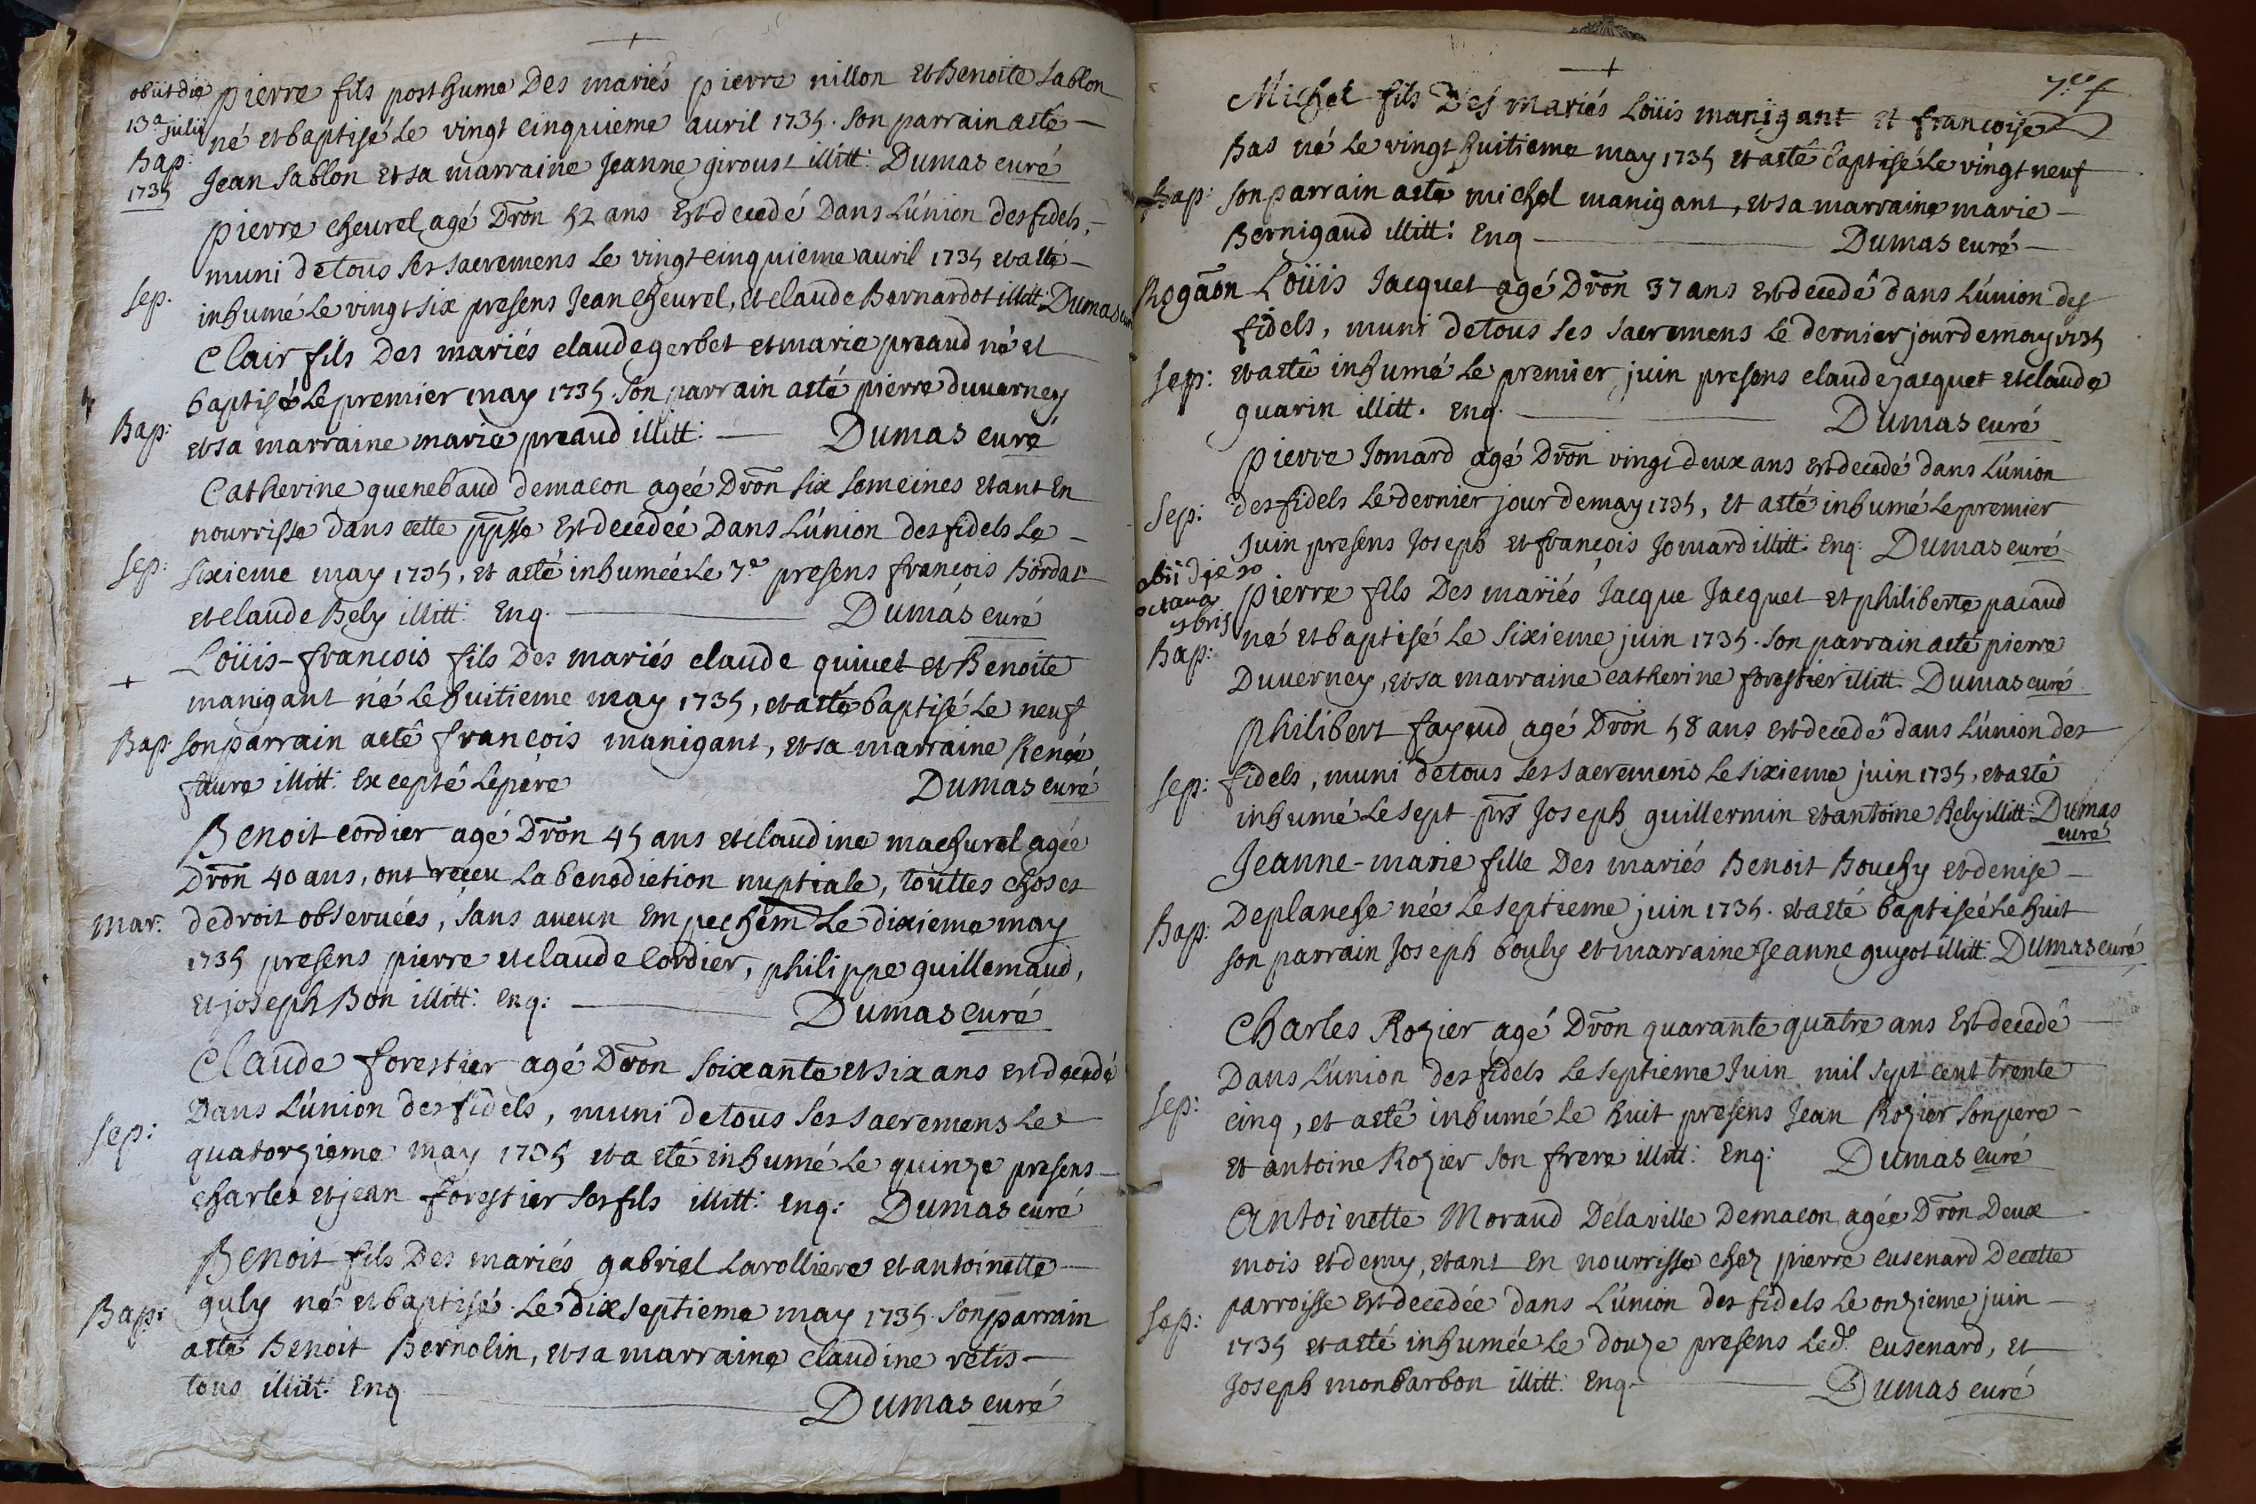 obiit die
13a julii
Bap:
1735
pierre fils posthume Des mariés pierre nillon Et Benoite Sablon
né et baptisé Le vingt cinquieme auril 1735. son parrain aété
Jean Sablon et sa marraine Jeanne giroust illitt: Dumas curé
pierre cheurel agé Dron 52 ans Est decedé Dans L'union des fidels,
muni de tous ses sacremens Le vingt cinquieme auril 1735 et aété
sep.
inhumé Le vingt six presens Jean cheurel, et claude Bernardot illitt: Dumas curé
Clair fils Des mariés claude gerbet et marie preaud né et
baptisé Le premier may 1735. son parrain aété pierre duuerney
Bap:
et sa marraine marie preaud illitt: Dumas curé
Catherine guenebaud de macon agéé Dron six semeines etant En
nourrisse dans cette ppsse Est decedéé Dans L'union des fidels Le
sep:
sixieme may 1735, et aété inhuméé Le 7e presens françois Bordat
et claude Bely illitt: Enq. Dumas curé
Loüis-francois fils Des mariés claude quiuet et Benoite
+
manigant né Le huitieme may 1735, et aété baptisé Le neuf
Bap:
son parrain aété francois manigant, et sa marraine Renée
faure illitt: Excepté Le pére Dumas curé
Benoit cordier agé Dron 45 ans et claudine machurel agée
Dron 40 ans, ont receu La benediction nuptiale, touttes choses
mar:
de droit obseruées, sans aucun Empechem Le dixieme may
1735 presens pierre et claude Cordier, philippe guillemaud,
et joseph Bon illitt: Enq: Dumas Curé
Claude forestier agé Dron soixante et six ans est decedé
Dans L'union des fidels, muni de tous ses sacremens Le
sep:
quatorzieme may 1735 et a eté inhumé Le quinze presens
charles et jean forestier ses fils illitt: Enq: Dumas curé
Benoit fils Des mariés gabriel Larolliere et antoinette
Bap:
guly né et baptisé Le dix septieme may 1735. son parrain
aété Benoit Bernolin, et sa marraine claudine retis
tous illitt: Enq Dumas curé
+
7e f
Michel fils Des mariés Loüis manigant et francoise
Bas né Le vingt huitieme may 1735 et aété baptisé Le vingt neuf
Bap:
son parrain aété michel manigant, et sa marraine marie
Bernigaud illitt: Enq Dumas curé
Rogaon
Loüis Jacquet agé Dron 37 ans est decedé dans L'union des
fidels, muni de tous ses sacremens Le dernier jour de may 1735
sep:
et aété inhumé Le premier juin presens claude jacquet et claude
guarin illitt. Enq. Dumas curé
pierre Jomard agé Dron vingt deux ans est decedé dans L'union
sep:
des fidels Le dernier jour de may 1735, et aété inhumé Le premier
Juin presens Joseph et françois Jomard illitt: Enq: Dumas curé
obii die
octaua
Bap:
pierre fils Des mariés Jacque Jacquet et philiberte pacaud
né et baptisé Le sixieme juin 1735. son parrain aété pierre
Duuerney, et sa marraine catherine forestier illitt: Dumas curé
Philibert fayaud agé Dron 58 ans est decedé dans L'union des
sep:
fidels, muni de tous ses sacremens Le sixieme juin 1735, et aété
inhumé Le sept prs Joseph guillermin et antoine Bely illitt: Dumas
curé
Jeanne-marie fille Des mariés Benoit Bouchy et denise
Bap:
Deplanche née Le septieme juin 1735. et aété baptiséé Le huit
son parrain Joseph bouly et marraine Jeanne guyot illitt: Dumas curé
Charles Rozier agé Dron quarante quatre ans Est decedé
Dans L'union des fidels Le septieme Juin mil sept cent trente
sep:
cinq, et aété inhumé Le huit presens Jean Rozier son pere
et antoine Rozier son frere illitt: Enq: Dumas curé
Antoinette Moraud De la ville De macon agée Dron Deux
mois et demy, etant en nourrisse chez pierre cusenard De cette
sep:
parroisse Est decedée dans L'union des fidels Le onzieme juin
1735 et aété inhumée Le douze presens Led. cusenard, et
Joseph monbarbon illitt: Enq. Dumas curé